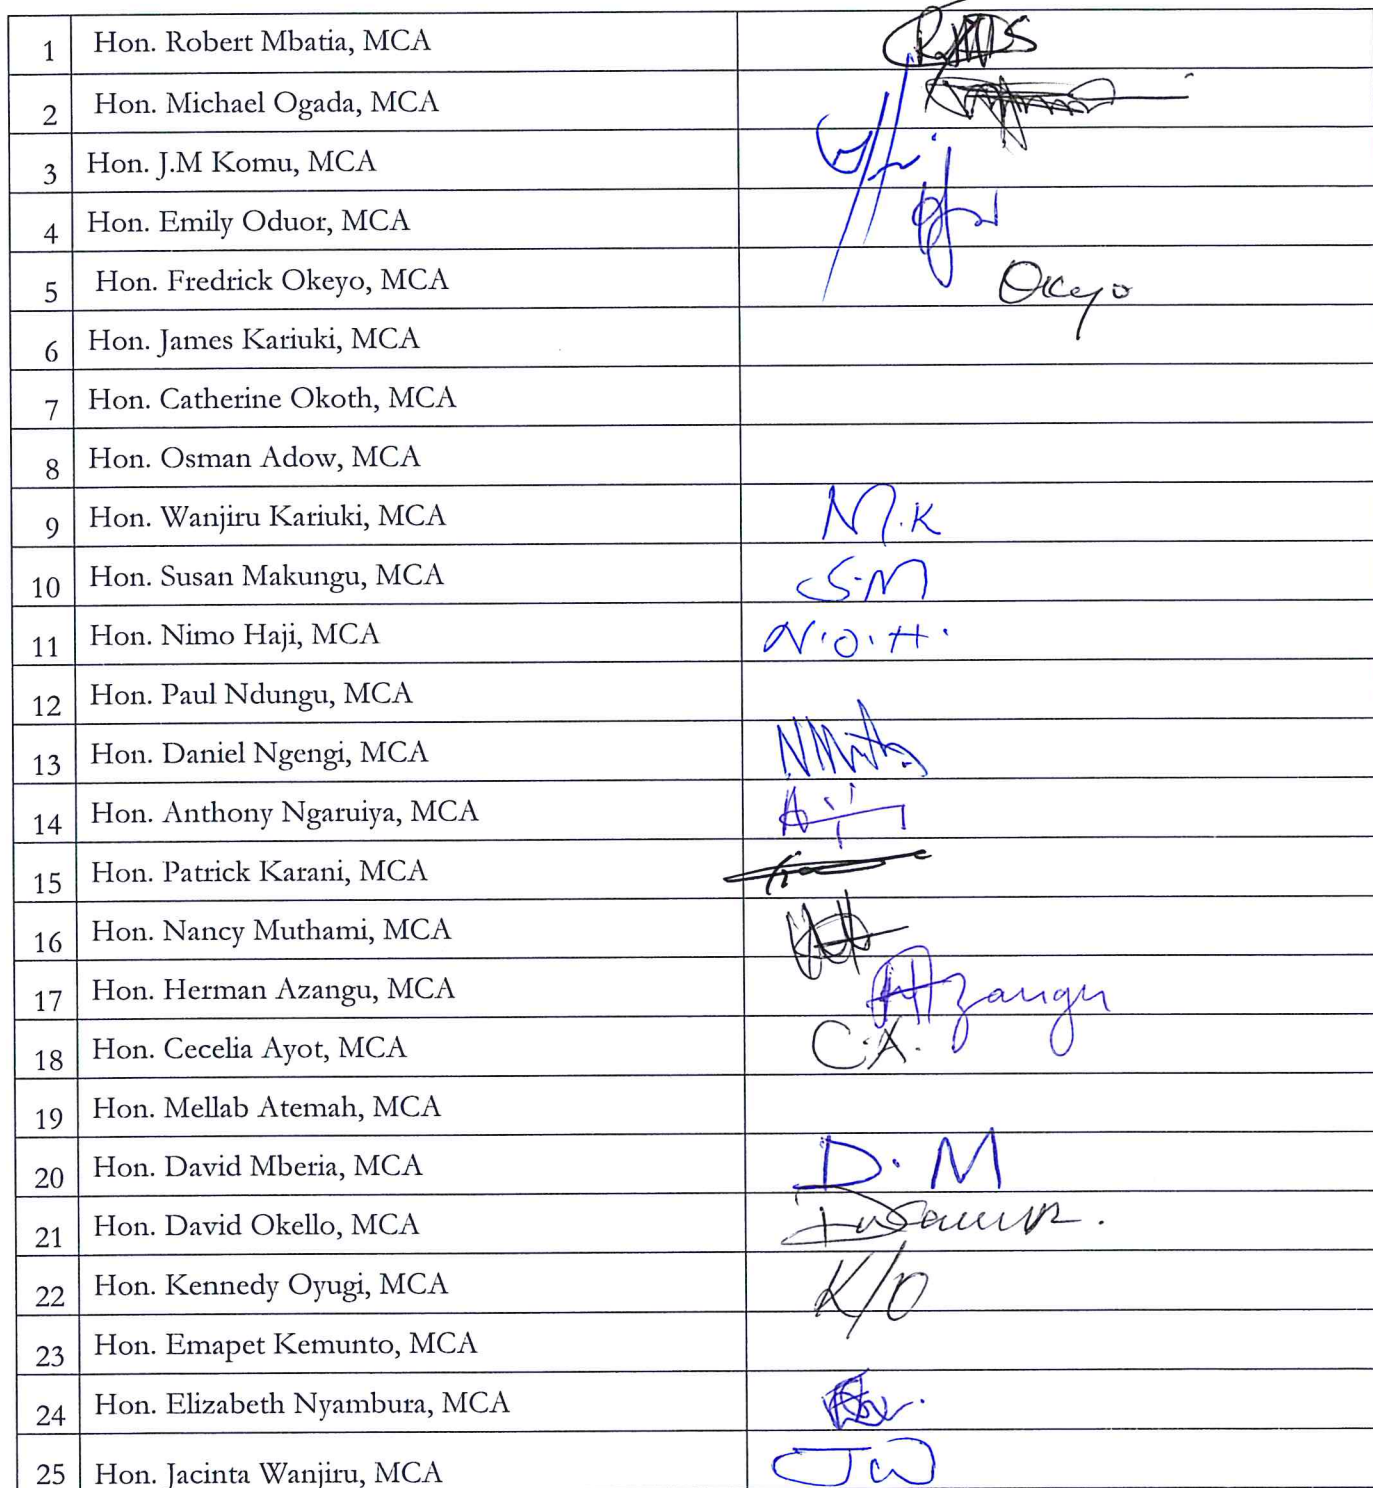 1 Hon. Robert Mbatia, MCA
2 Hon. Michael Ogada, MCA
3 Hon. J.M Komu, MCA
4 Hon. Emily Oduor, MCA
5 Hon. Fredrick Okeyo, MCA Okeyo
6 Hon. James Kariuki, MCA
7 Hon. Catherine Okoth, MCA
8 Hon. Osman Adow, MCA
9 Hon. Wanjiru Kariuki, MCA M.K
10 Hon. Susan Makungu, MCA S.M
11 Hon. Nimo Haji, MCA N.O.H.
12 Hon. Paul Ndungu, MCA
13 Hon. Daniel Ngengi, MCA
14 Hon. Anthony Ngaruiya, MCA
15 Hon. Patrick Karani, MCA
16 Hon. Nancy Muthami, MCA
17 Hon. Herman Azangu, MCA Azangu
18 Hon. Cecelia Ayot, MCA C.A.
19 Hon. Mellab Atemah, MCA
20 Hon. David Mberia, MCA D. M
21 Hon. David Okello, MCA
22 Hon. Kennedy Oyugi, MCA K/O
23 Hon. Emapet Kemunto, MCA
24 Hon. Elizabeth Nyambura, MCA
25 Hon. Jacinta Wanjiru, MCA JW